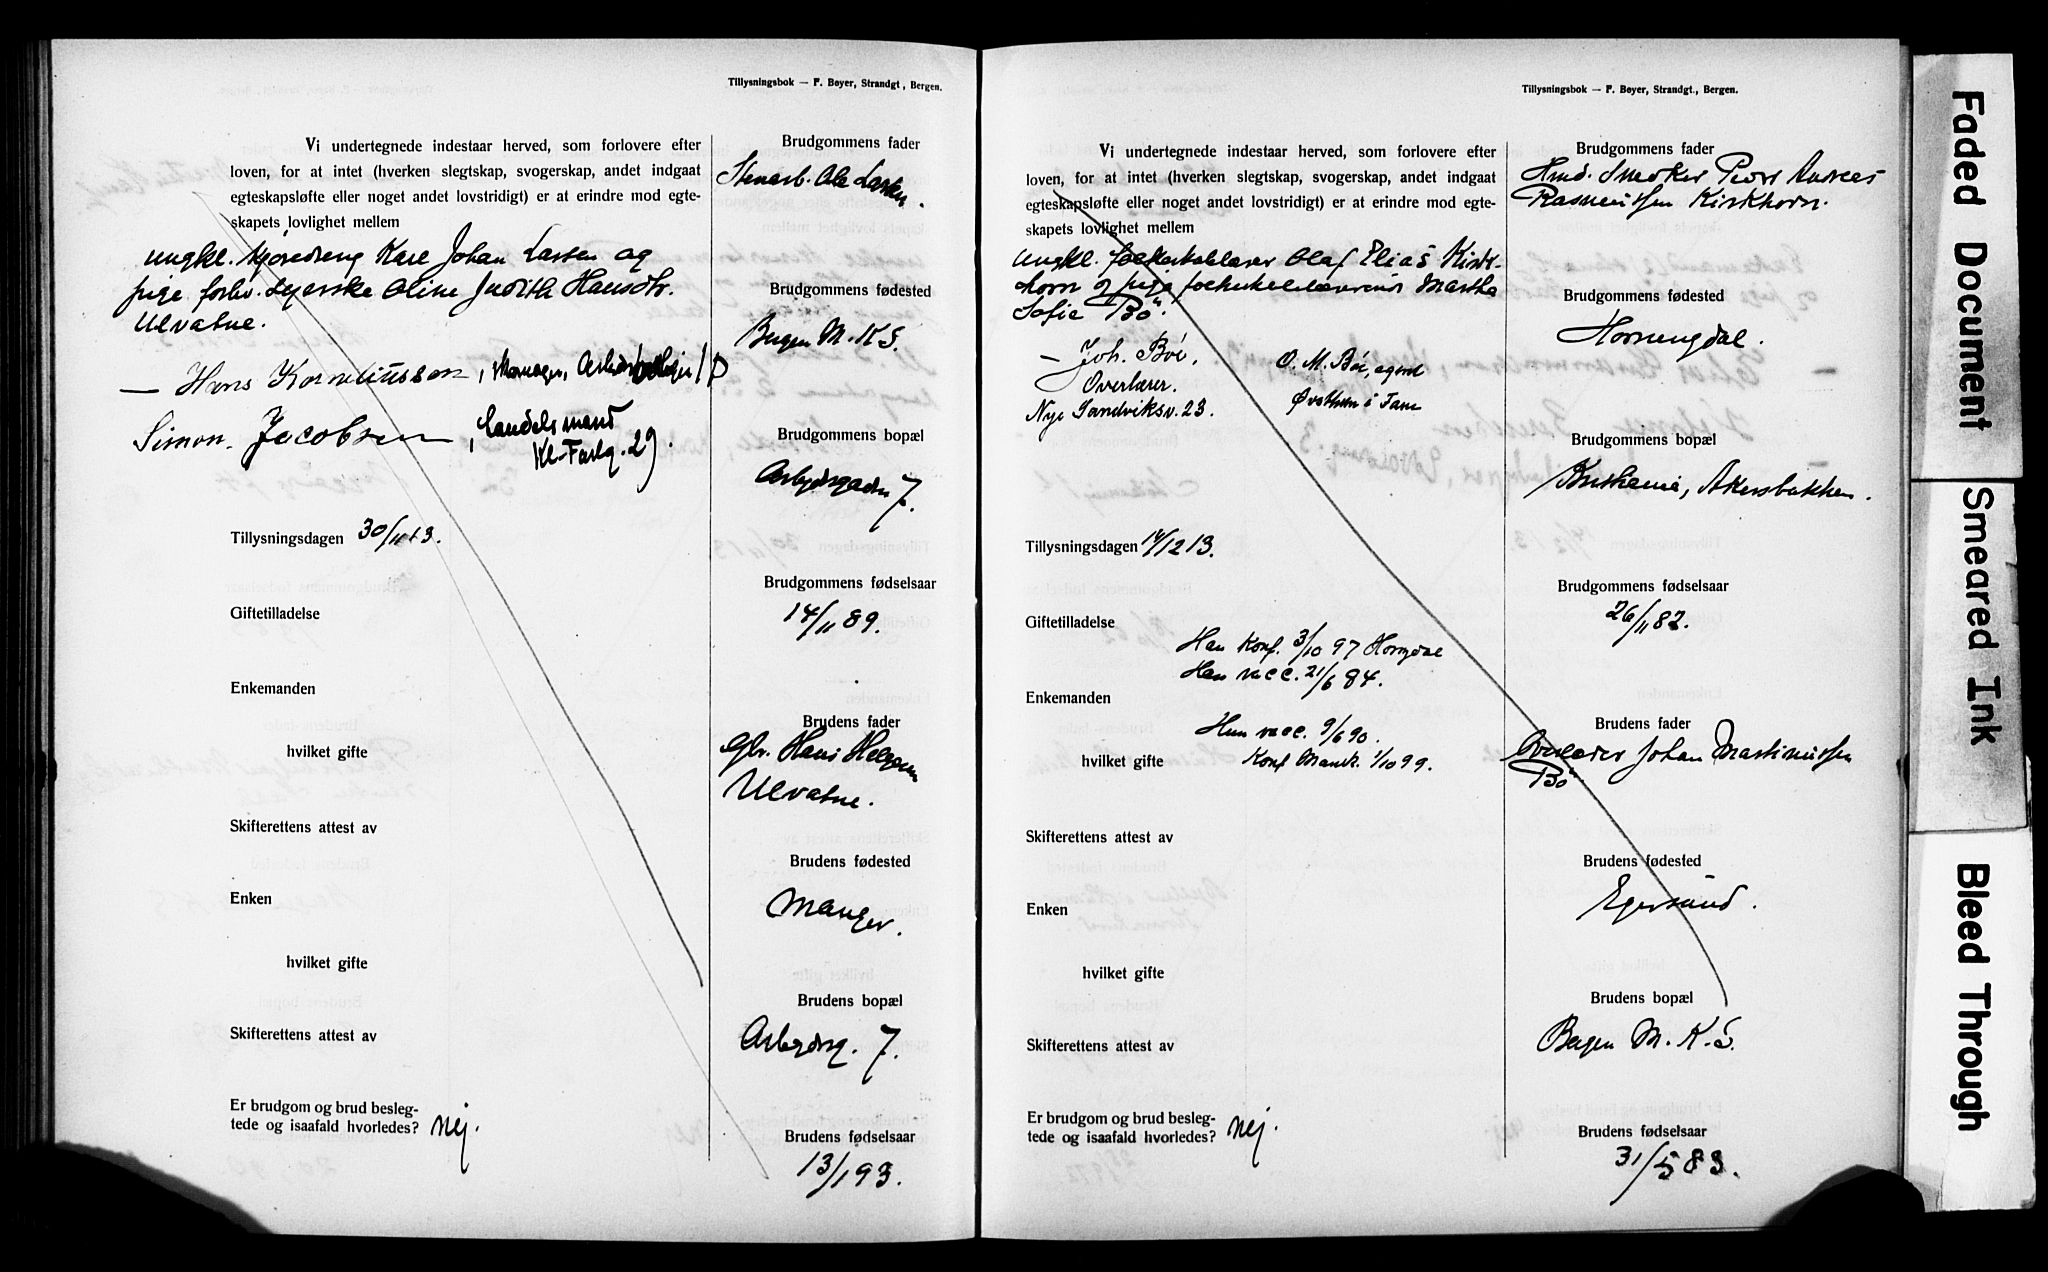 Tillysningsbok — F. Bøyer, Strandgt., Bergen.
Vi undertegnede indestaar herved, som forlovere efter
loven, for at intet (hverken slegtskap, svogerskap, andet indgaat
egteskapsløfte eller noget andet lovstridigt) er at erindre mod egte-
skapets lovlighet mellem
ungkl. kjøredreng Karl Johan Larsen og
pige forhv. syerske Oline Judith Hansdtr.
Ulvatne.
— Hans Korneliussen, Manager,
Simon Jacobsen, Handelsmand
Kl. Farlg. 29.
Tillysningsdagen 30/11 13.
Giftetilladelse
Enkemanden
hvilket gifte
Skifterettens attest av
Enken
hvilket gifte
Skifterettens attest av
Er brudgom og brud besleg-
tede og isaafald hvorledes? Nej.
Brudgommens fader
Stenarb. Ole Larsen.
Brudgommens fødested
Bergen M. K S.
Brudgommens bopæl
Arbejdergaden 7.
Brudgommens fødselsaar
14/11 89.
Brudens fader
Gbr. Hans Helgesen
Ulvatne.
Brudens fødested
Manger.
Brudens bopæl
Arbejderg. 7.
Brudens fødselsaar
13/1 93.
Tillysningsbok — F. Bøyer, Strandgt., Bergen.
Vi undertegnede indestaar herved, som forlovere efter
loven, for at intet (hverken slegtskap, svogerskap, andet indgaat
egteskapsløfte eller noget andet lovstridigt) er at erindre mod egte-
skapets lovlighet mellem
ungkl. folkeskolelærer Olaf Elias Kirk-
horn og pige folkeskolelærerinde Martha
Sofie Bö.
— Joh. Böe,
Overlærer.
Nye Sandviksv. 23.
O. M. Böe, agent
Øvsttun i Fane
Tillysningsdagen 14/12 13.
Giftetilladelse
Han Konf. 3/10 97 Horngdal
Han vacc. 21/6 84.
Enkemanden
Hun vacc. 9/6 90.
hvilket gifte
Konf Mandl. 1/10 99.
Skifterettens attest av
Enken
hvilket gifte
Skifterettens attest av
Er brudgom og brud besleg-
tede og isaafald hvorledes? Nej.
Brudgommens fader
Hmd. Snedker Peder Andreas
Rasmussen Kirkhorn.
Brudgommens fødested
Hornengdal.
Brudgommens bopæl
Kristiania, Akersbakken.
Brudgommens fødselsaar
26/11 82.
Brudens fader
Overlærer Johan Martinussen
Bö
Brudens fødested
Egersund.
Brudens bopæl
Bergen M. K. S.
Brudens fødselsaar
31/5 83.
Faded Document
Smeared Ink
Bleed Through